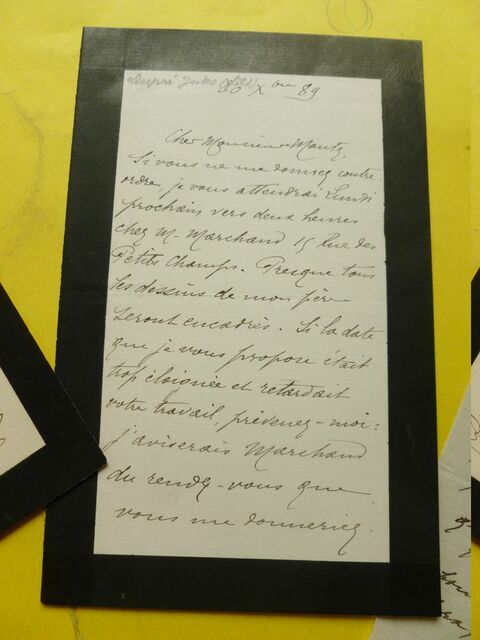 Dupré Jules (fils)
30 Xbre 89
Cher Monsieur Mantz,
Si vous ne me donnez contre
ordre, je vous attendrai Lundi
prochain vers deux heures
chez M. Marchand 15 Rue des
Petits Champs. Presque tous
les dessins de mon père
seront encadrés. Si la date
que je vous propose était
trop éloignée et retardait
votre travail, prévenez-moi:
j'aviserais Marchand
du rendez-vous que
vous me donneriez.